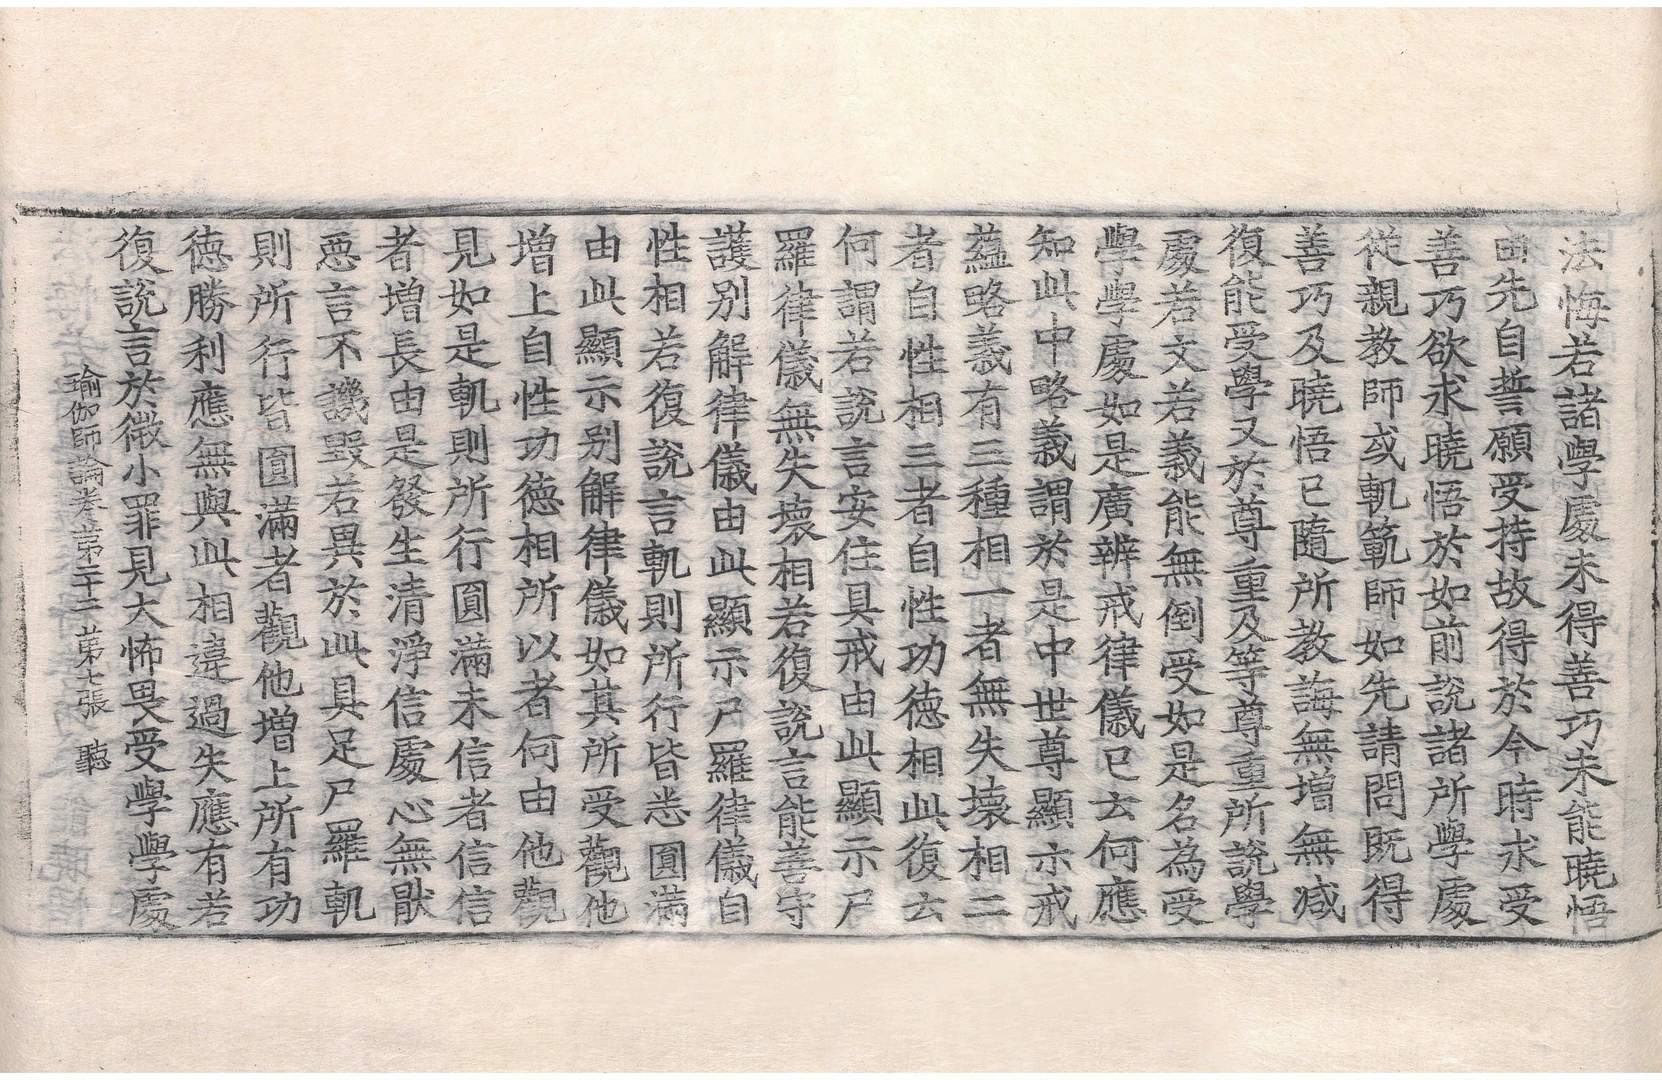 法悔若諸學處未得善巧未能曉悟
由先自誓願受持故得於今時求受
善巧欲求曉悟於如前說諸所學處
從親教師或軌範師如先請問既得
善巧及曉悟已隨所教誨無增無減
復能受學又於尊重及等尊重所說學
處若文若義能無倒受如是名為受
學學處如是廣辨戒律儀已云何應
知此中略義謂於是中世尊顯示戒
蘊略義有三種相一者無失壞相二
者自性相三者自性功德相此復云
何謂若說言安住具戒由此顯示尸
羅律儀無失壞相若復說言能善守
護別解律儀由此顯示尸羅律儀自
性相若復說言軌則所行皆悉圓滿
由此顯示別解律儀如其所受觀他
增上自性功德相所以者何由他觀
見如是軌則所行圓滿未信者信信
者增長由是發生清淨信處心無猒
惡言不譏毀若異於此具足尸羅軌
則所行皆圓滿者觀他增上所有功
德勝利應無與此相違過失應有若
復說言於微小罪見大怖畏受學學處
瑜伽師論卷第二十二 第七張 聽